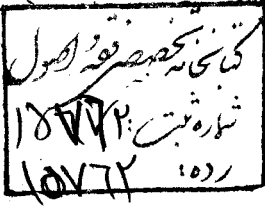 کتابخانه تخصصی فقه و اصول
شماره ثبت:
رده: ۱۵۷۶۲